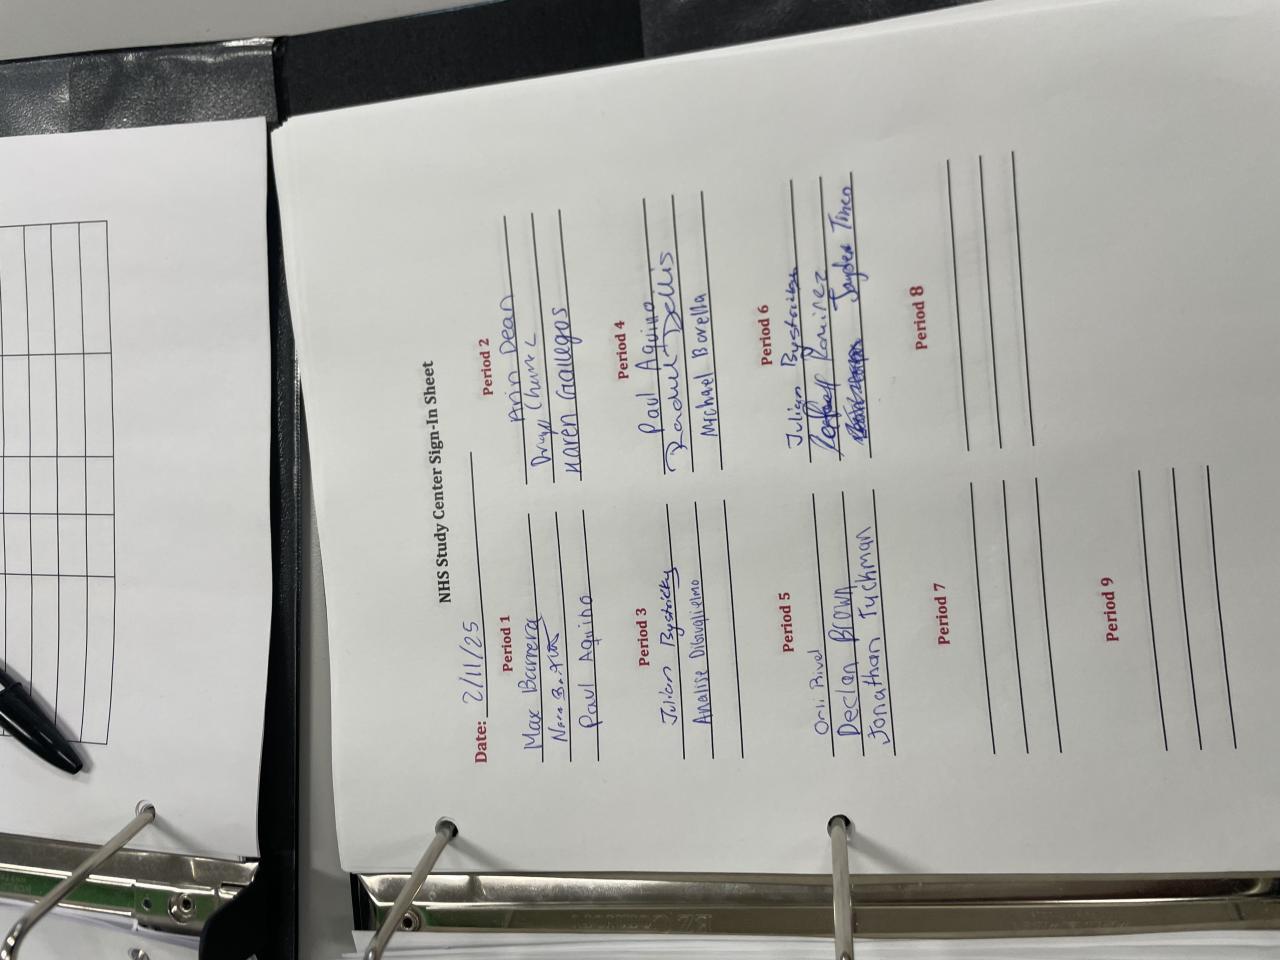 NHS Study Center Sign-In Sheet
Date: 2/11/25
Period 1
Max Barrera
Paul Aquino
Period 2
Arin Dean
Karen Gallegos
Period 3
Julian Bystricky
Analise DiGuglielmo
Period 4
Paul Aquino
Dellis
Michael Borella
Period 5
Orli
Declan Brown
Jonathan Tuchman
Period 6
Julian Bystricky
Ramirez
Jayden
Period 7
Period 8
Period 9